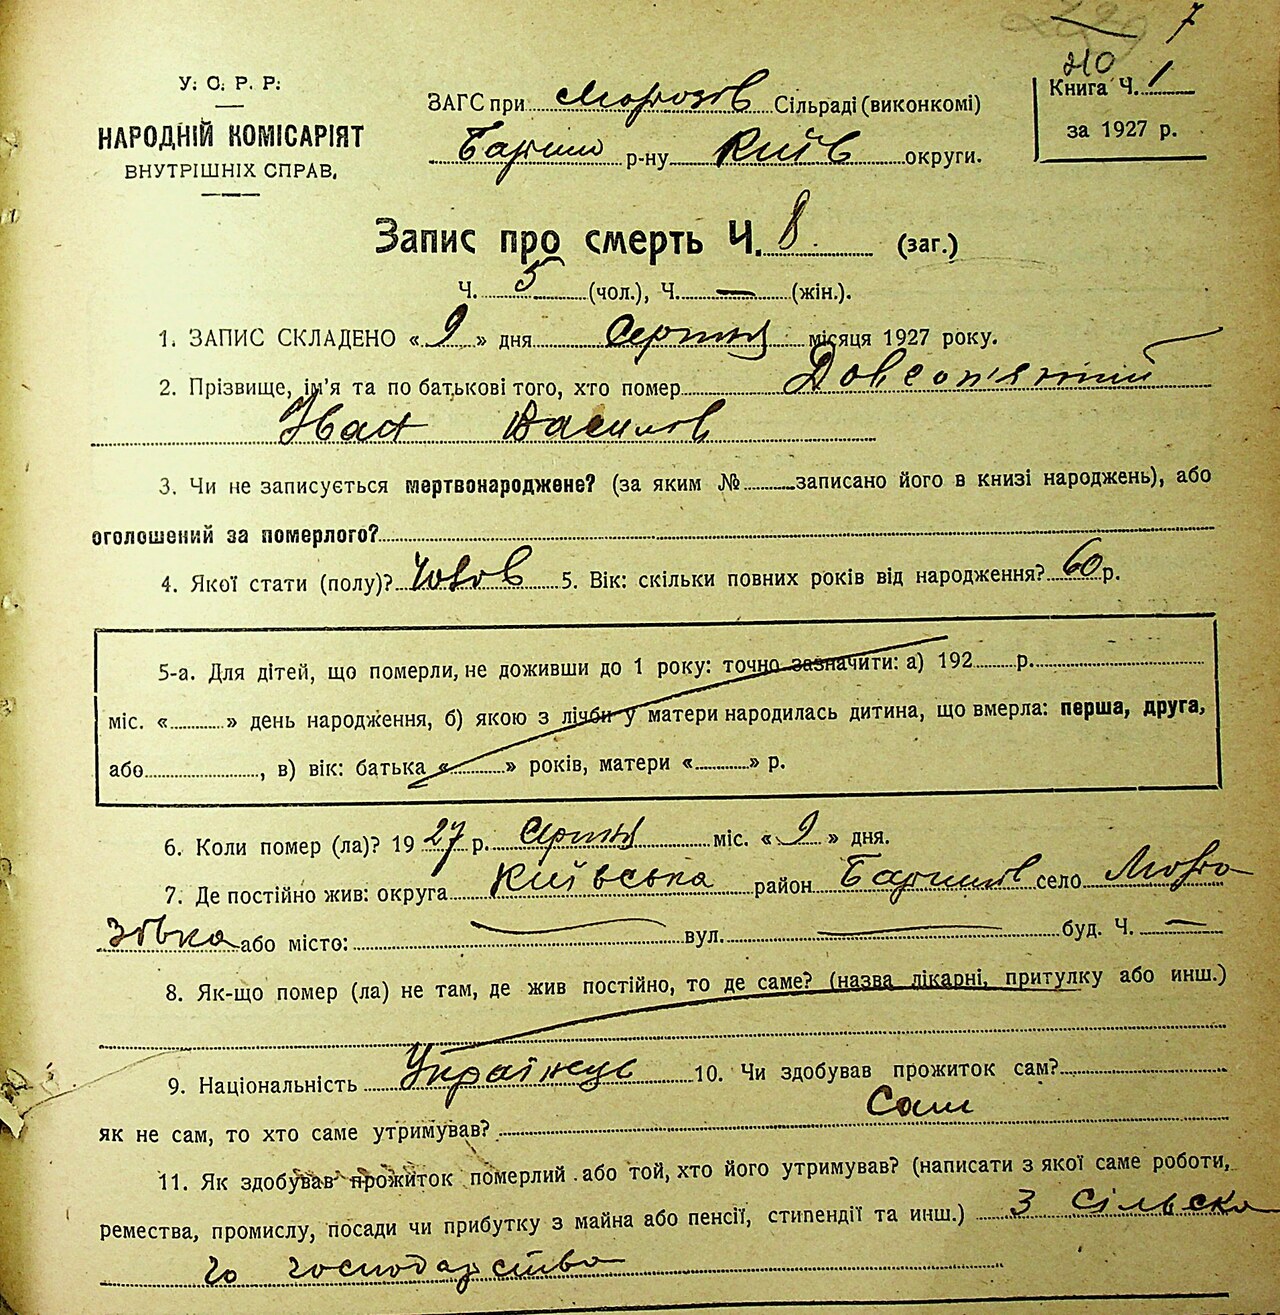 7
210
У. С. Р. Р.
НАРОДНІЙ КОМІСАРІЯТ
ВНУТРІШНІХ СПРАВ.
ЗАГС при Морозів Сільраді (виконкомі)
Бариш р-ну Київ округи.
Книга Ч. 1
за 1927 р.
Запис про смерть Ч. 8 (заг.)
Ч. 5 (чол.), Ч. — (жін.).
1. ЗАПИС СКЛАДЕНО « 9 » дня Серпня місяця 1927 року.
2. Прізвище, ім'я та по батькові того, хто помер Довгоп'ятий
Іван Василів
3. Чи не записується мертвонароджене? (за яким № записано його в книзі народжень), або
оголошений за померлого?
4. Якої стати (полу)? Чолов 5. Вік: скільки повних років від народження? 60 р.
5-а. Для дітей, що померли, не доживши до 1 року: точно зазначити: а) 192 р.
міс. « » день народження, б) якою з лічби у матери народилась дитина, що вмерла: перша, друга,
або , в) вік: батька « » років, матери « » р.
6. Коли помер (ла)? 19 27 р. Серпня міс. « 9 » дня.
7. Де постійно жив: округа Київська район Баришів село Моро
зівка або місто: — вул. — буд. Ч. —
8. Як-що помер (ла) не там, де жив постійно, то де саме? (назва лікарні, притулку або инш.)
9. Національність Українець 10. Чи здобував прожиток сам?
Сам
як не сам, то хто саме утримував?
11. Як здобував прожиток померлий або той, хто його утримував? (написати з якої саме роботи,
ремества, промислу, посади чи прибутку з майна або пенсії, стипендії та инш.) З сільсько
го господарства